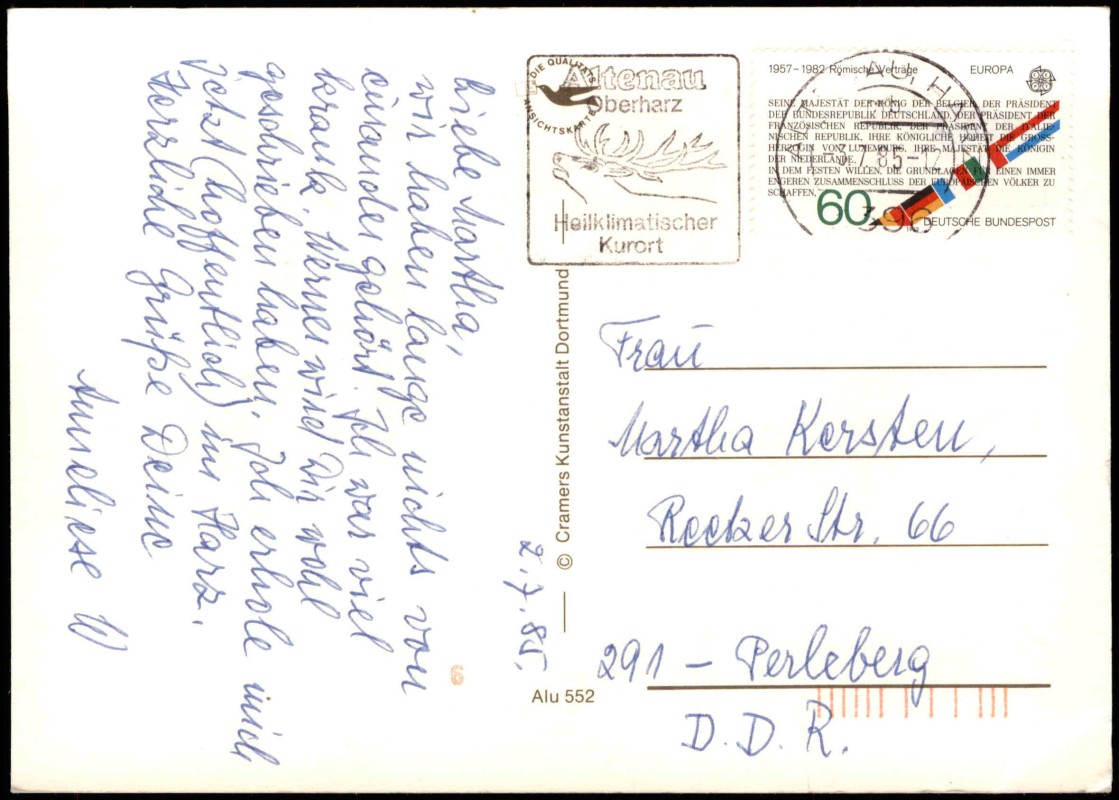 Liebe Martha,
wir haben lange nichts von
einander gehört. Ich war viel
krank, Werner wird Dir wohl
geschrieben haben. Ich erhole mich
jetzt (hoffentlich) im Harz.
Herzliche Grüße Deine
Anneliese W
2.7.85.
DIE QUALITÄTS
ANSICHTSKARTE
Altenau
Oberharz
Heilklimatischer
Kurort
1957–1982 Römische Verträge EUROPA
SEINE MAJESTÄT DER KÖNIG DER BELGIER, DER PRÄSIDENT
DER BUNDESREPUBLIK DEUTSCHLAND, DER PRÄSIDENT DER
FRANZÖSISCHEN REPUBLIK, DER PRÄSIDENT DER ITALIE-
NISCHEN REPUBLIK, IHRE KÖNIGLICHE HOHEIT DIE GROSS-
HERZOGIN VON LUXEMBURG, IHRE MAJESTÄT DIE KÖNIGIN
DER NIEDERLANDE,
IN DEM FESTEN WILLEN, DIE GRUNDLAGEN FÜR EINEN IMMER
ENGEREN ZUSAMMENSCHLUSS DER EUROPÄISCHEN VÖLKER ZU
SCHAFFEN,
60 DEUTSCHE BUNDESPOST
7.85-12
© Cramers Kunstanstalt Dortmund
Frau
Martha Kersten,
Recker Str. 66
291 – Perleberg
D.D.R.
6
Alu 552